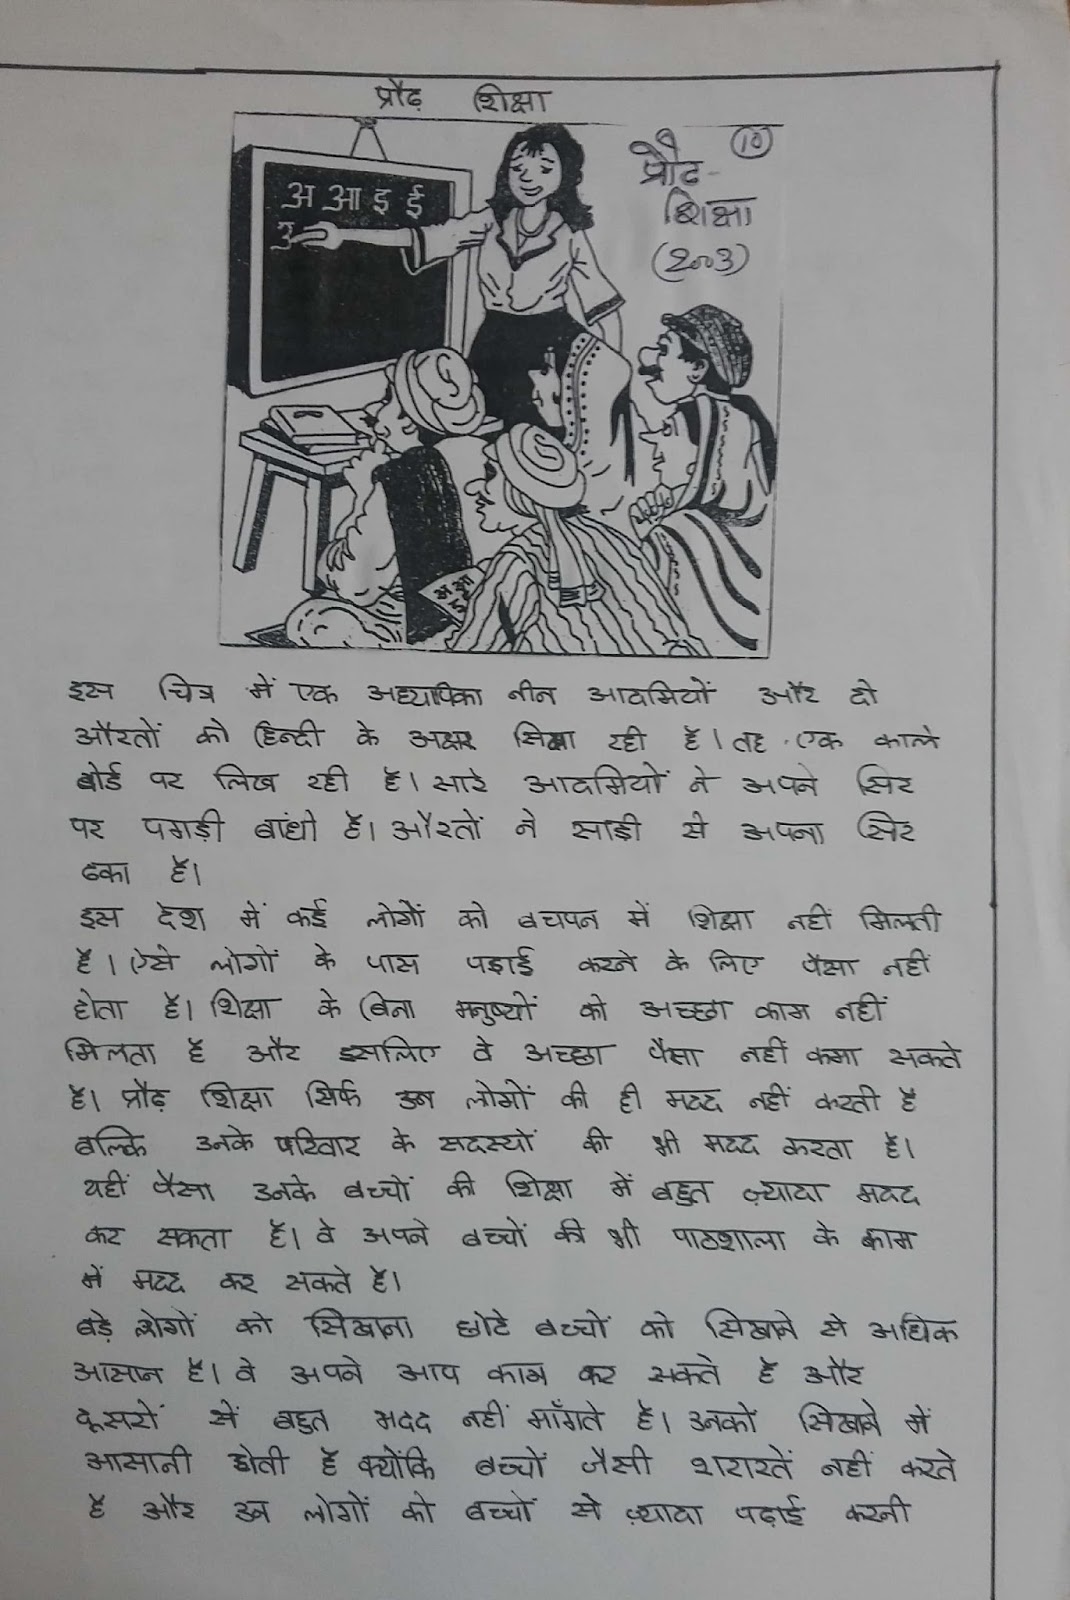 प्रौढ़ शिक्षा
१०
प्रौढ़-
शिक्षा
(२००३)
अ आ इ ई
उ
अ आ
इस चित्र में एक अध्यापिका तीन आदमियों और दो
औरतों को हिन्दी के अक्षर सिखा रही है। वह एक काले
बोर्ड पर लिख रही है। सारे आदमियों ने अपने सिर
पर पगड़ी बांधी है। औरतों ने साड़ी से अपना सिर
ढका है।
इस देश में कई लोगों को बचपन में शिक्षा नहीं मिलती
है। ऐसे लोगों के पास पढ़ाई करने के लिए पैसा नहीं
होता है। शिक्षा के बिना मनुष्यों को अच्छा काम नहीं
मिलता है और इसलिए वे अच्छा पैसा नहीं कमा सकते
है। प्रौढ़ शिक्षा सिर्फ उन लोगों की ही मदद नहीं करती है
बल्कि उनके परिवार के सदस्यों की भी मदद करता है।
यहीं पैसा उनके बच्चों की शिक्षा में बहुत ज़्यादा मदद
कर सकता है। वे अपने बच्चों की भी पाठशाला के काम
में मदद कर सकते है।
बड़े लोगों को सिखाना छोटे बच्चों को सिखाने से अधिक
आसान है। वे अपने आप काम कर सकते है और
दूसरों से बहुत मदद नहीं माँगते है। उनको सिखाने में
आसानी होती है क्योंकि बच्चों जैसी शरारतें नहीं करते
है और उन लोगों को बच्चों से ज़्यादा पढ़ाई करनी